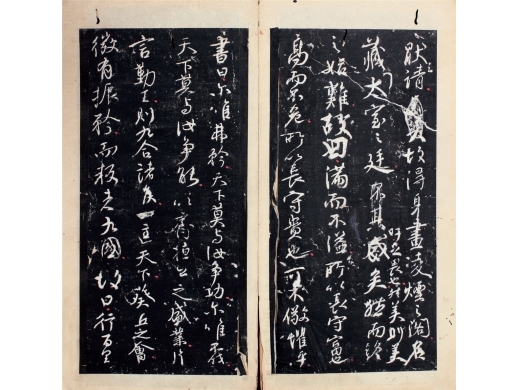 猒請故得身畫凌煙之閣名
藏太室之廷
吁足畏也然美則美矣
而終
之始難故曰滿而不溢所以長守富
高而不危所以長守貴也可不儆懼乎
書曰爾唯弗矜天下莫與汝爭功爾唯不伐
天下莫與汝爭能以齊桓公之盛業片
言勤王則九合諸侯一匡天下葵丘之會
微有振矜而叛者九國故曰行百里